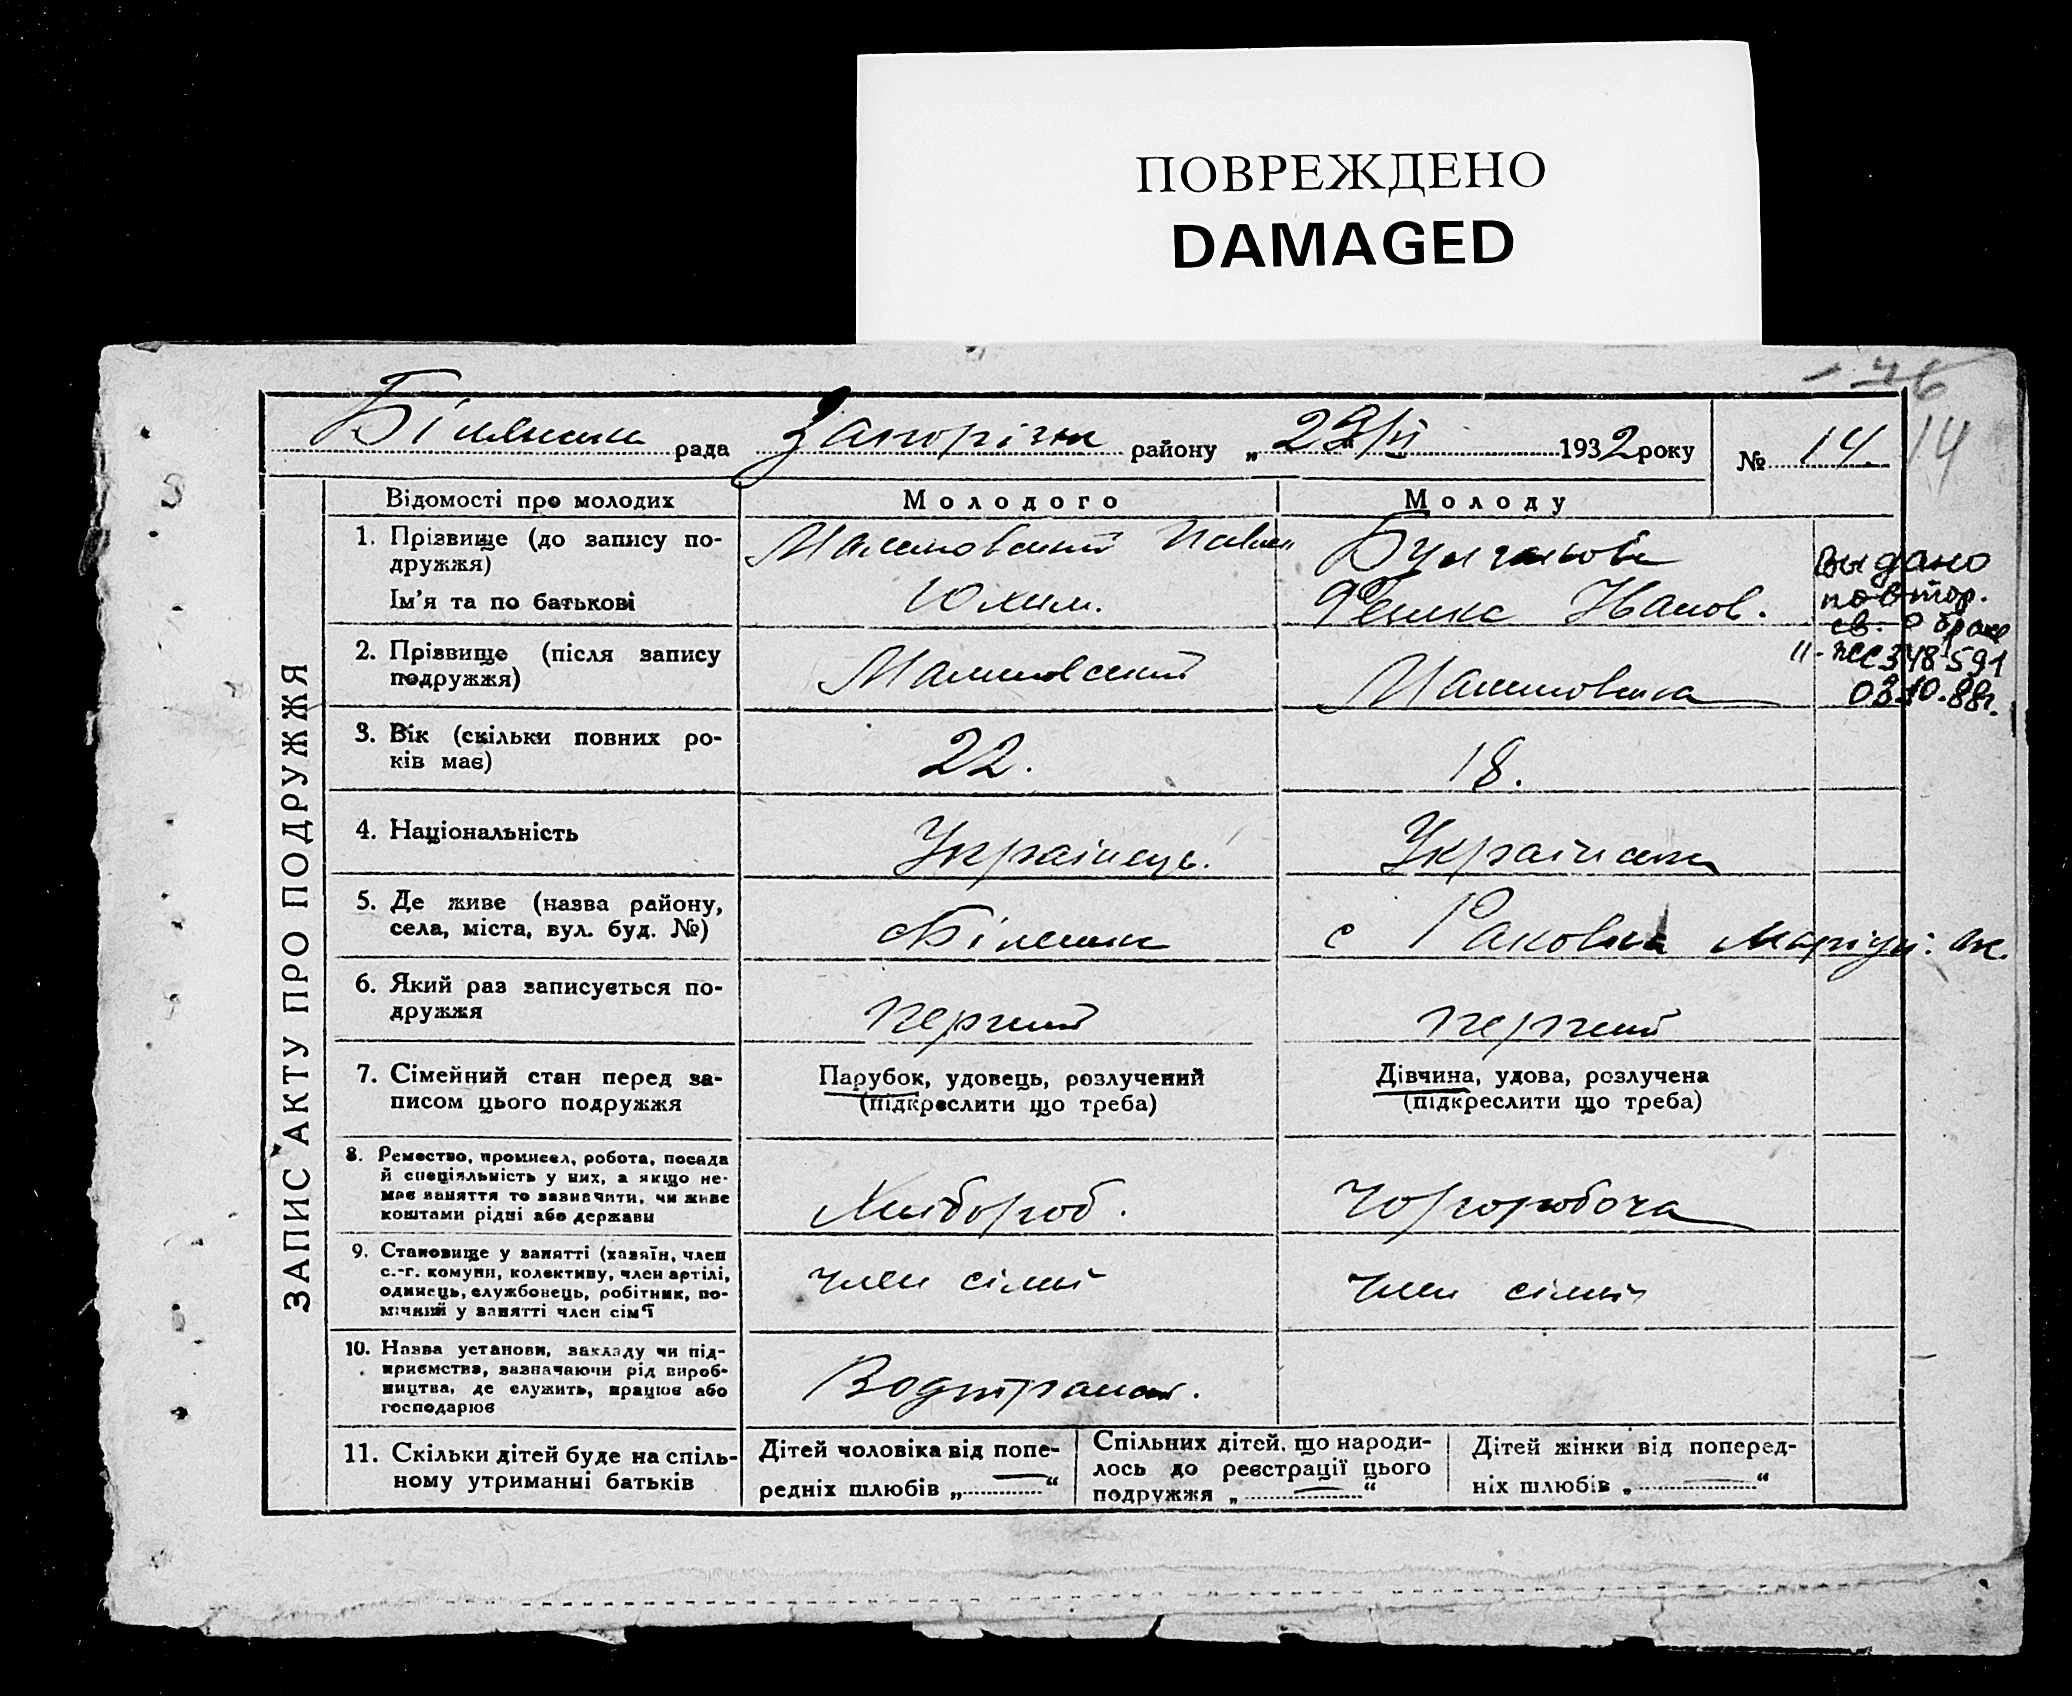 ПОВРЕЖДЕНО
DAMAGED
рада Запорізьк району „ 29/VI 1932 року
№ 14.
14
ЗАПИС АКТУ ПРО ПОДРУЖЖЯ
Відомості про молодих
Молодого
Молоду
1. Прізвище (до запису по-
дружжя)
Ім'я та по батькові
Юхим.
Іванов.
выдано
повтор.
св. о браке
348591
03.10.88г.
2. Прізвище (після запису
подружжя)
Малиновский
3. Вік (скільки повних ро-
ків має)
22.
18.
4. Національність
Українець.
Українка
5. Де живе (назва району,
села, міста, вул. буд. №)
с
6. Який раз записується по-
дружжя
перший
перший
7. Сімейний стан перед за-
писом цього подружжя
Парубок, удовець, розлучений
(підкреслити що треба)
Дівчина, удова, розлучена
(підкреслити що треба)
8. Ремество, промисел, робота, посада
й спеціяльність у них, а якщо не-
має заняття то зазначити, чи живе
коштами рідні або держави
Хлібороб.
Чорноробоча
9. Становище у занятті (хазяїн, член
с.-г. комуни, колективу, член артілі,
одинець, службовець, робітник, по-
мічний у занятті член сім'ї
член сімї
член сімї
10. Назва установи, закладу чи під-
приємства, зазначаючи рід вироб-
ництва, де служить, працює або
господарює
Водтранс.
11. Скільки дітей буде на спіль-
ному утриманні батьків
Дітей чоловіка від попе-
редніх шлюбів „ — “
Спільних дітей, що народи-
лось до реєстрації цього
подружжя „ — “
Дітей жінки від поперед-
ніх шлюбів „ — “